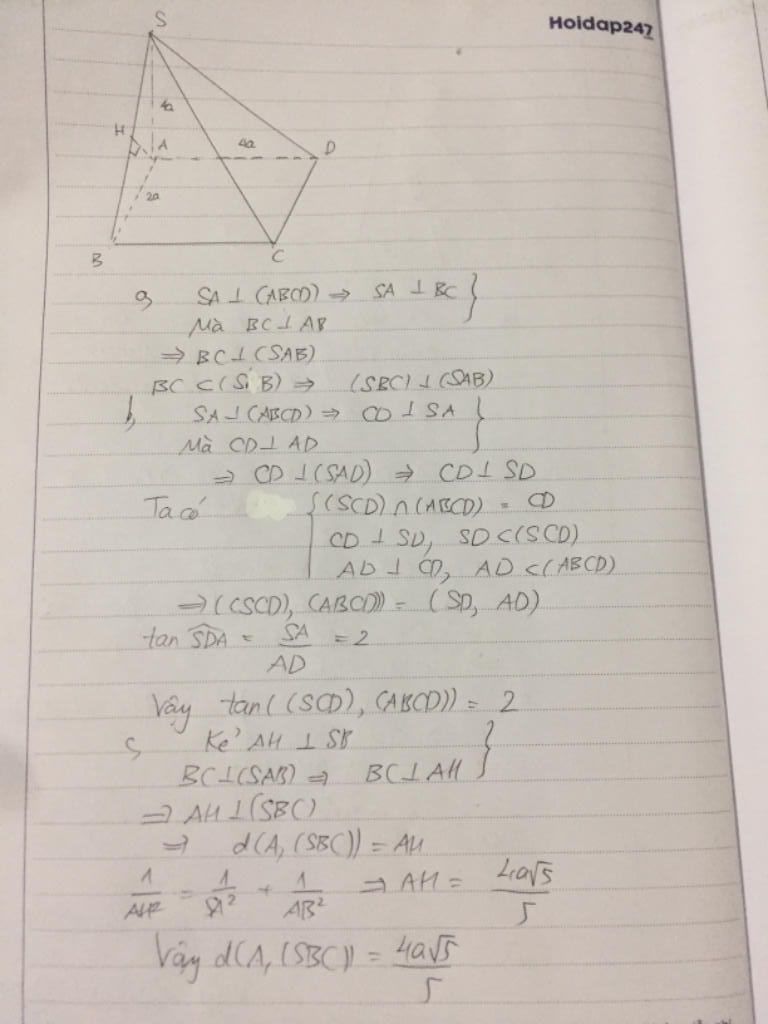 Hoidap247
S
4a
H
A
4a
D
2a
B
C
a, SA ⊥ (ABCD) ⇒ SA ⊥ BC }
Mà BC ⊥ AB
⇒ BC ⊥ (SAB)
BC ⊂ (S B) ⇒ (SBC) ⊥ (SAB)
b, SA ⊥ (ABCD) ⇒ CD ⊥ SA }
Mà CD ⊥ AD
⇒ CD ⊥ (SAD) ⇒ CD ⊥ SD
Ta có { (SCD) ∩ (ABCD) = CD
CD ⊥ SD, SD ⊂ (SCD)
AD ⊥ CD, AD ⊂ (ABCD)
⇒ ((SCD), (ABCD)) = (SD, AD)
tan SDA = SA/AD = 2
Vậy tan((SCD), (ABCD)) = 2
c, Kẻ AH ⊥ SB }
BC ⊥ (SAB) ⇒ BC ⊥ AH
⇒ AH ⊥ (SBC)
⇒ d(A, (SBC)) = AH
1/AH² = 1/SA² + 1/AB² ⇒ AH = 4a√5/5
Vậy d(A, (SBC)) = 4a√5/5